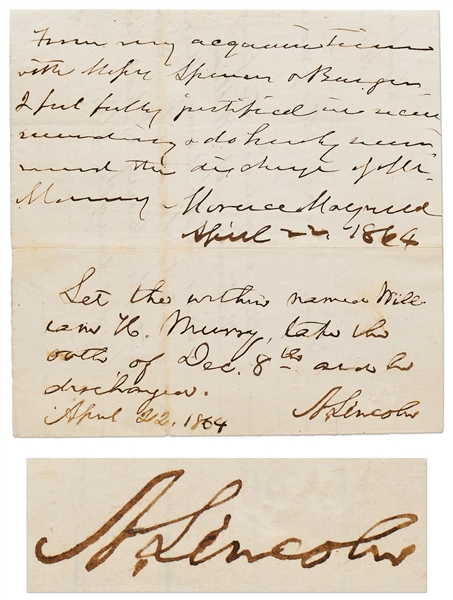 From my acquaintance
with Messrs Spencer & Burgin
I feel fully justified in recom
mending & do hereby recom
mend the discharge of Mr
Murry Horace Maynard
April 22, 1864
Let the within named Will-
iam H. Murry, take the
oath of Dec. 8th and be
discharged.
April 22, 1864 A. Lincoln
A. Lincoln